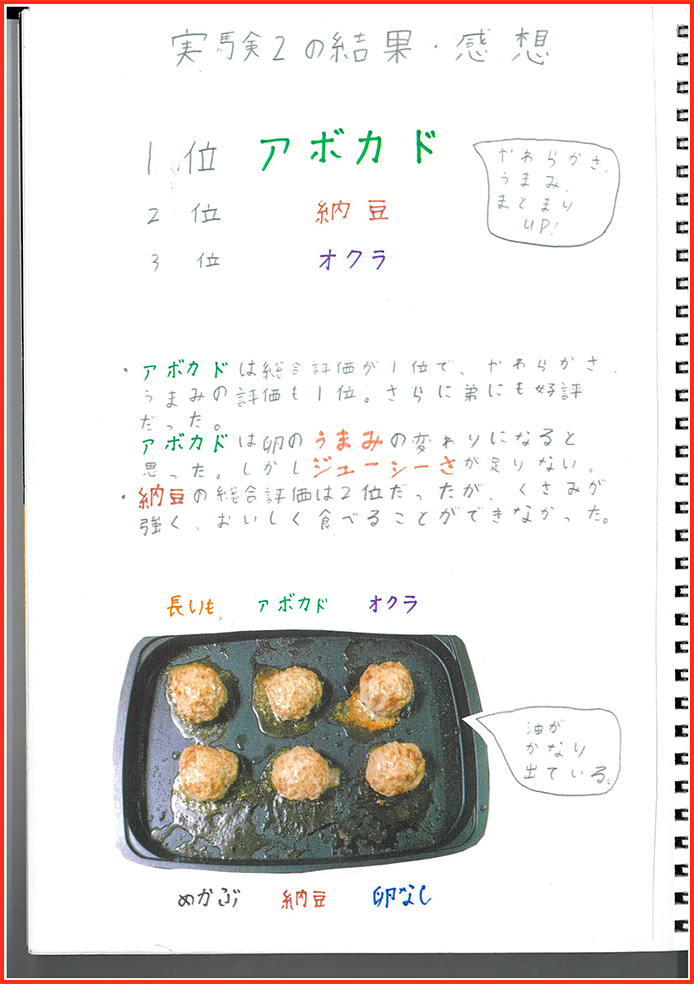 実験2の結果・感想
1位 アボカド
やわらかさ、
うまみ、
まとまり
UP!
2位 納豆
3位 オクラ
・アボカドは総合評価が1位で、やわらかさ、
うまみの評価も1位。さらに弟にも好評
だった。
アボカドは卵のうまみの変わりになると
思った。しかしジューシーさが足りない。
・納豆の総合評価は2位だったが、くさみが
強く、おいしく食べることができなかった。
長いも アボカド オクラ
油が
かなり
出ている。
めかぶ 納豆 卵なし